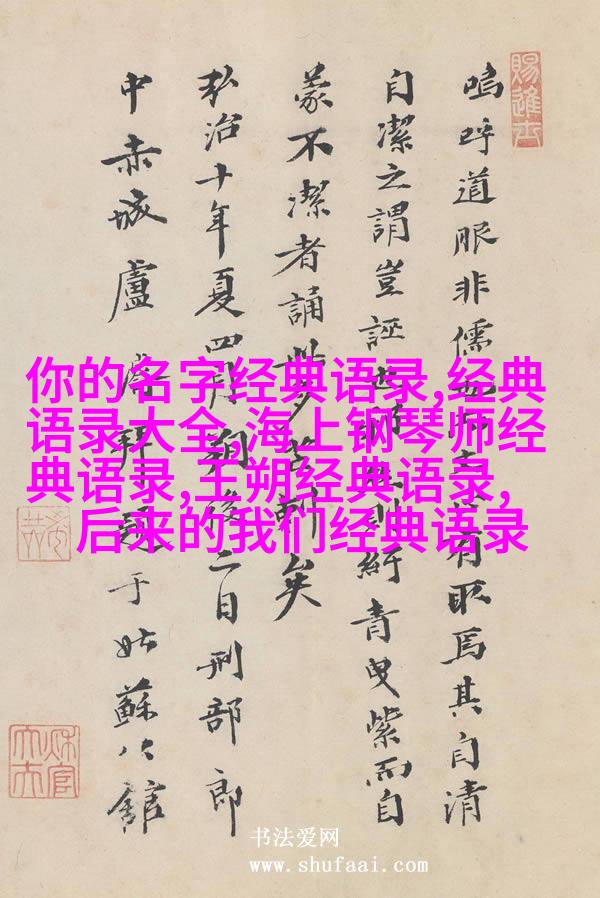 賜進士
嗚呼道眼非儒有取焉其自清
自潔之謂豈誣紆青曳紫而自
蒙不潔者誦此矣
弘治十年夏四月朔後二日刑部郎
中赤城盧拜題于姑蘇公館
你的名字经典语录,经典
语录大全,海上钢琴师经
典语录,王朔经典语录,
后来的我们经典语录
书法爱网
www.shufaai.com